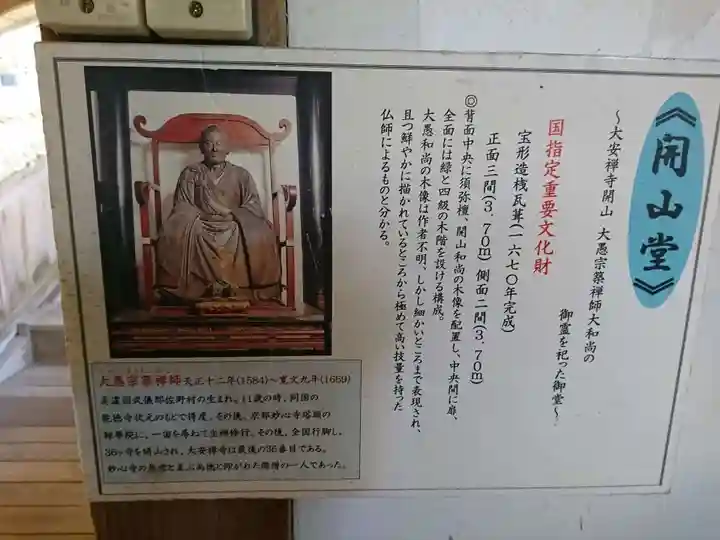 《開山堂》
～大安禅寺開山 大愚宗築禅師大和尚の
御霊を祀った御堂～
国指定重要文化財
宝形造桟瓦葺(一六七〇年完成)
正面三間(3.70m) 側面二間(3.70m)
◎背面中央に須弥壇、開山和尚の木像を配置し、中央間に扉、
全面には縁と四級の木階を設ける構成。
大愚和尚の木像は作者不明、しかし細かいところまで表現され、
且つ鮮やかに描かれているところから極めて高い技量を持った
仏師によるものと分かる。
大愚宗築禅師 天正十二年(1584)～寛文九年(1669)
美濃国武儀郡佐野村の生まれ。11歳の時、同国の
乾徳寺状元のもとで得度。その後、京都妙心寺塔頭の
雑華院に、一宙を尋ねて坐禅修行。その後、全国行脚し、
36ヶ寺を開山され、大安禅寺は最後の36番目である。
妙心寺の愚堂と並ぶ高徳に仰がれた傑僧の一人であった。